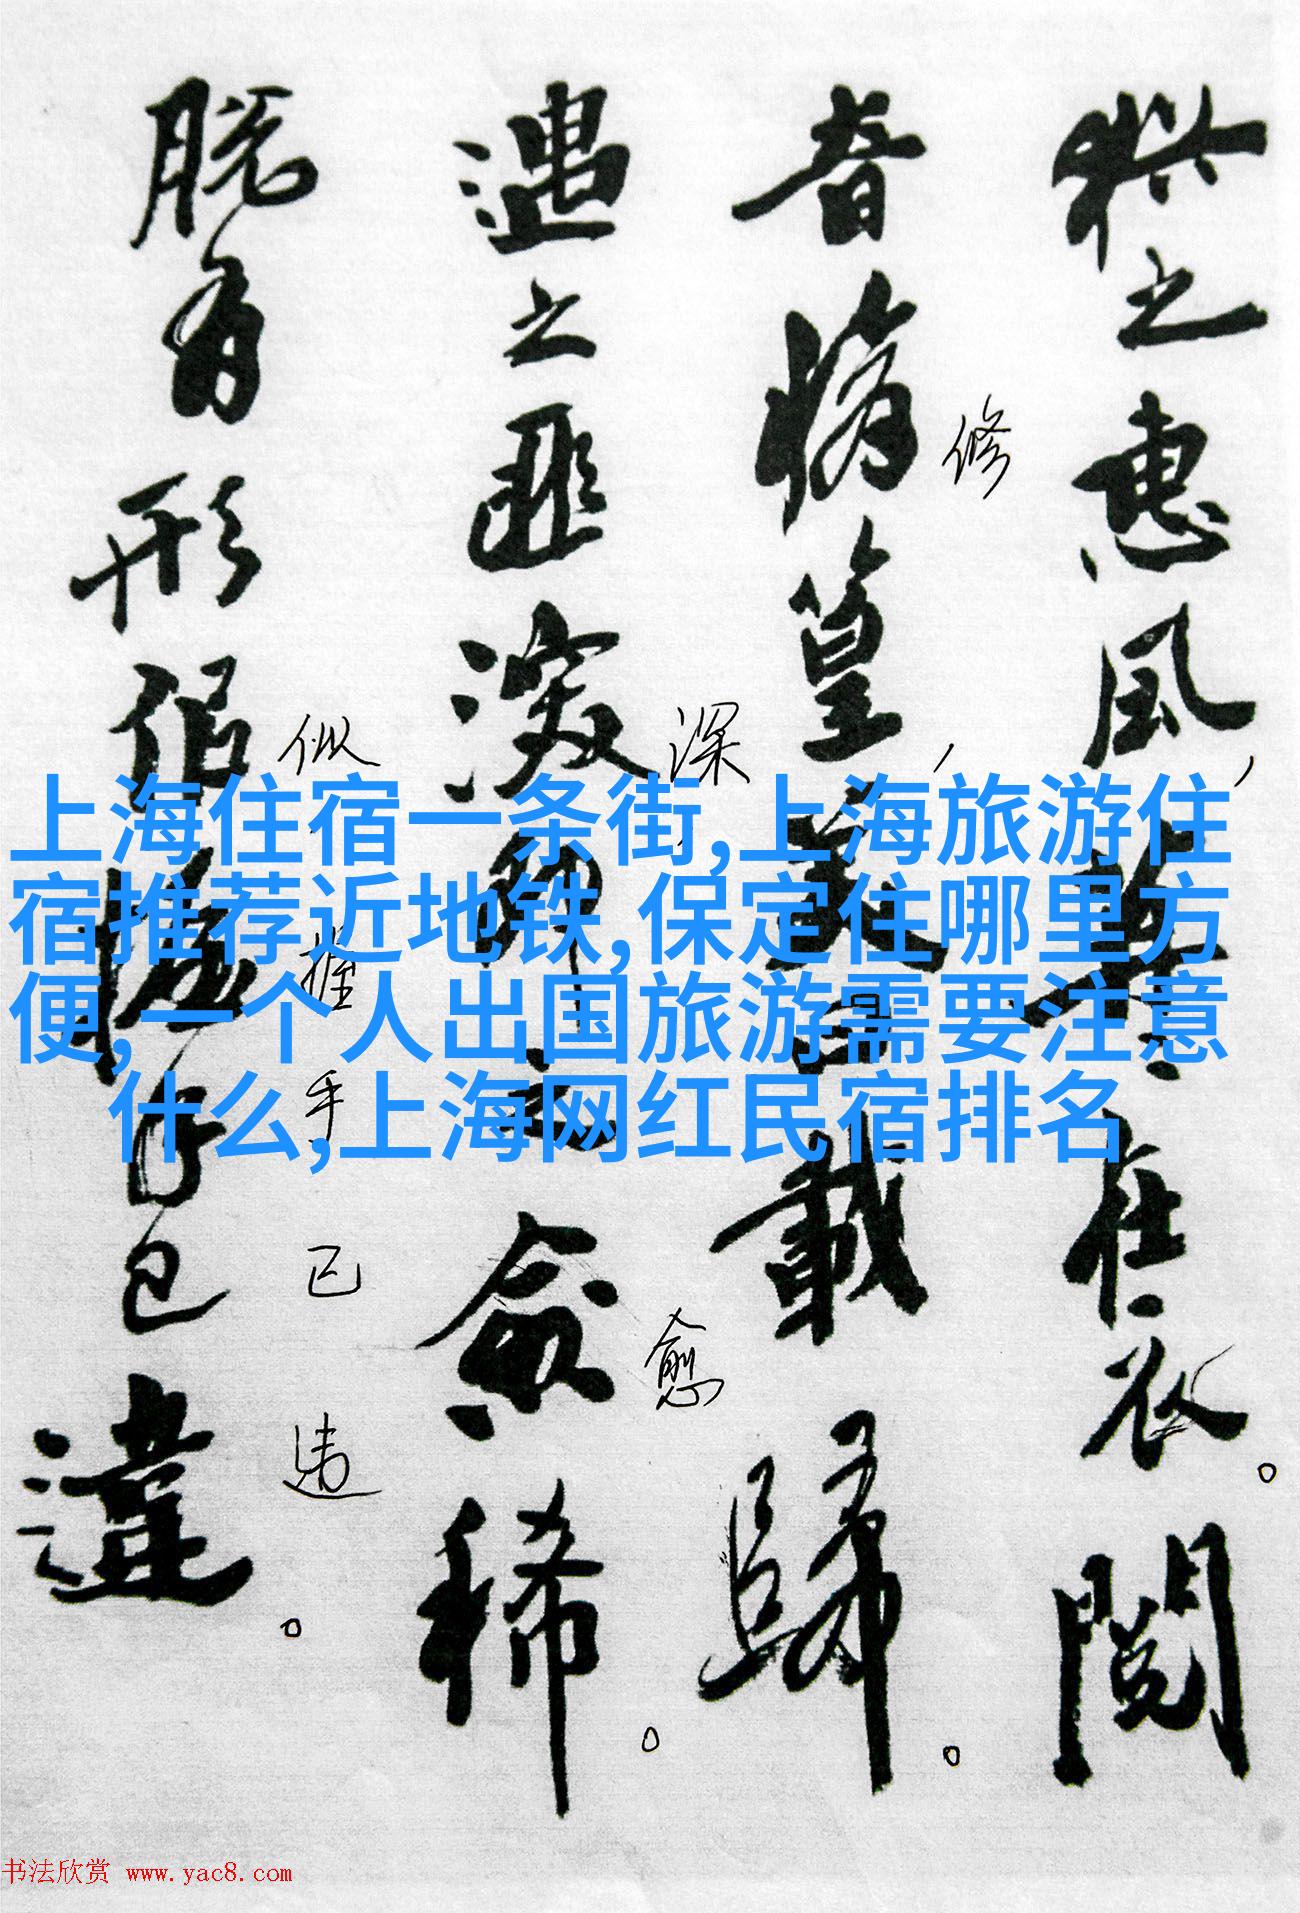 猶之惠風，在衣。閱
音修篁，美曰載歸。
修
遇之匪深，即之愈稀。
深
愈
脱有形似握手已違。
似
握
手
已
违
上海住宿一条街,上海旅游住
宿推荐近地铁,保定住哪里方
便,一个人出国旅游需要注意
什么,上海网红民宿排名
书法欣赏 www.yac8.com